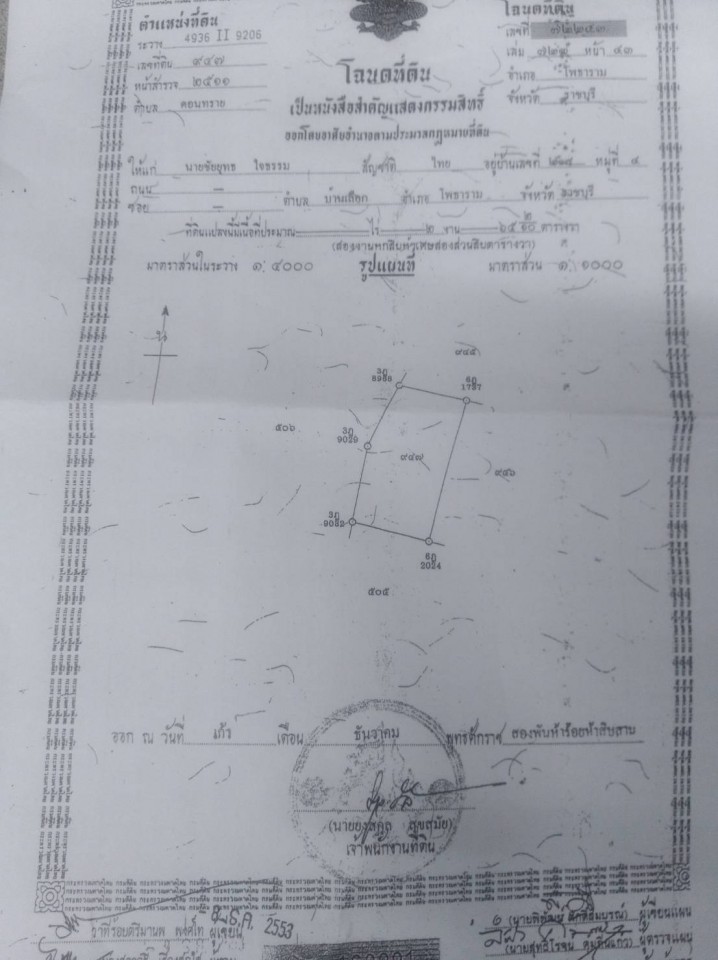 ตำแหน่งที่ดิน
ระวาง 4936 II 9206
เลขที่ดิน ๙๔๗
หน้าสำรวจ ๒๕๑๑
ตำบล ดอนทราย
โฉนดที่ดิน
เลขที่ ๗๒๒๔๓
เล่ม หน้า ๔๓
อำเภอ โพธาราม
จังหวัด ราชบุรี
โฉนดที่ดิน
เป็นหนังสือสำคัญแสดงกรรมสิทธิ์
ออกโดยอาศัยอำนาจตามประมวลกฎหมายที่ดิน
ให้แก่ นายชัยยุทธ ใจธรรม สัญชาติ ไทย อยู่บ้านเลขที่ หมู่ที่ ๔
ถนน —
ซอย — ตำบล บ้านเลือก อำเภอ โพธาราม จังหวัด ราชบุรี
ที่ดินแปลงนี้มีเนื้อที่ประมาณ — ไร่ ๒ งาน ๖๕ ๒/๑๐ ตารางวา
(สองงานหกสิบห้าเศษสองส่วนสิบตารางวา)
มาตราส่วนในระวาง ๑:๔๐๐๐ รูปแผนที่ มาตราส่วน ๑:๑๐๐๐
น
๙๔๕
3ฎ
8968
6ฎ
1787
๕๐๖
3ฎ
9029
๙๔๗
๙๔๖
3ฎ
9032
6ฎ
2024
๕๐๕
ออก ณ วันที่ เก้า เดือน ธันวาคม พุทธศักราช สองพันห้าร้อยห้าสิบสาม
เจ้าพนักงานที่ดิน
ว่าที่ร้อยตรี ผู้เขียน ธ.ค. 2553
ผู้เขียนแผน
ผู้ตรวจแผน